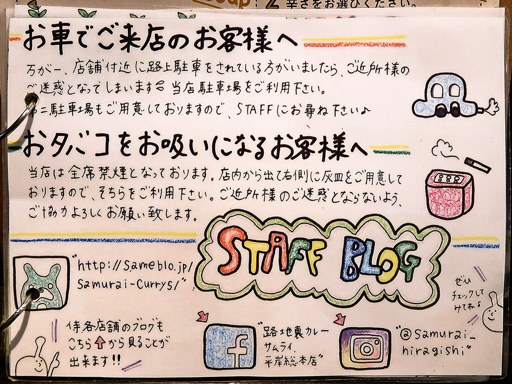 辛さをお選びください。
お車でご来店のお客様へ
万が一、店舗付近に路上駐車をされている方がいましたら、ご近所様の
ご迷惑となってしまいます 当店駐車場をご利用下さい。
第二駐車場もご用意しておりますので、STAFFにお尋ね下さい♪
おタバコをお吸いになるお客様へ
当店は全席禁煙となっております。店内から出て右側に灰皿をご用意して
おりますので、そちらをご利用下さい。ご近所様のご迷惑とならないよう、
ご協力よろしくお願い致します。
STAFF BLOG
"http://sameblo.jp/
samurai-currys/"
ぜひ
チェックして
みてね♪
侍各店舗のブログも
こちら↑から見ることが
出来ます!!
"路地裏カレー
サムライ
平岸総本店"
"@samurai_
hiragishi"